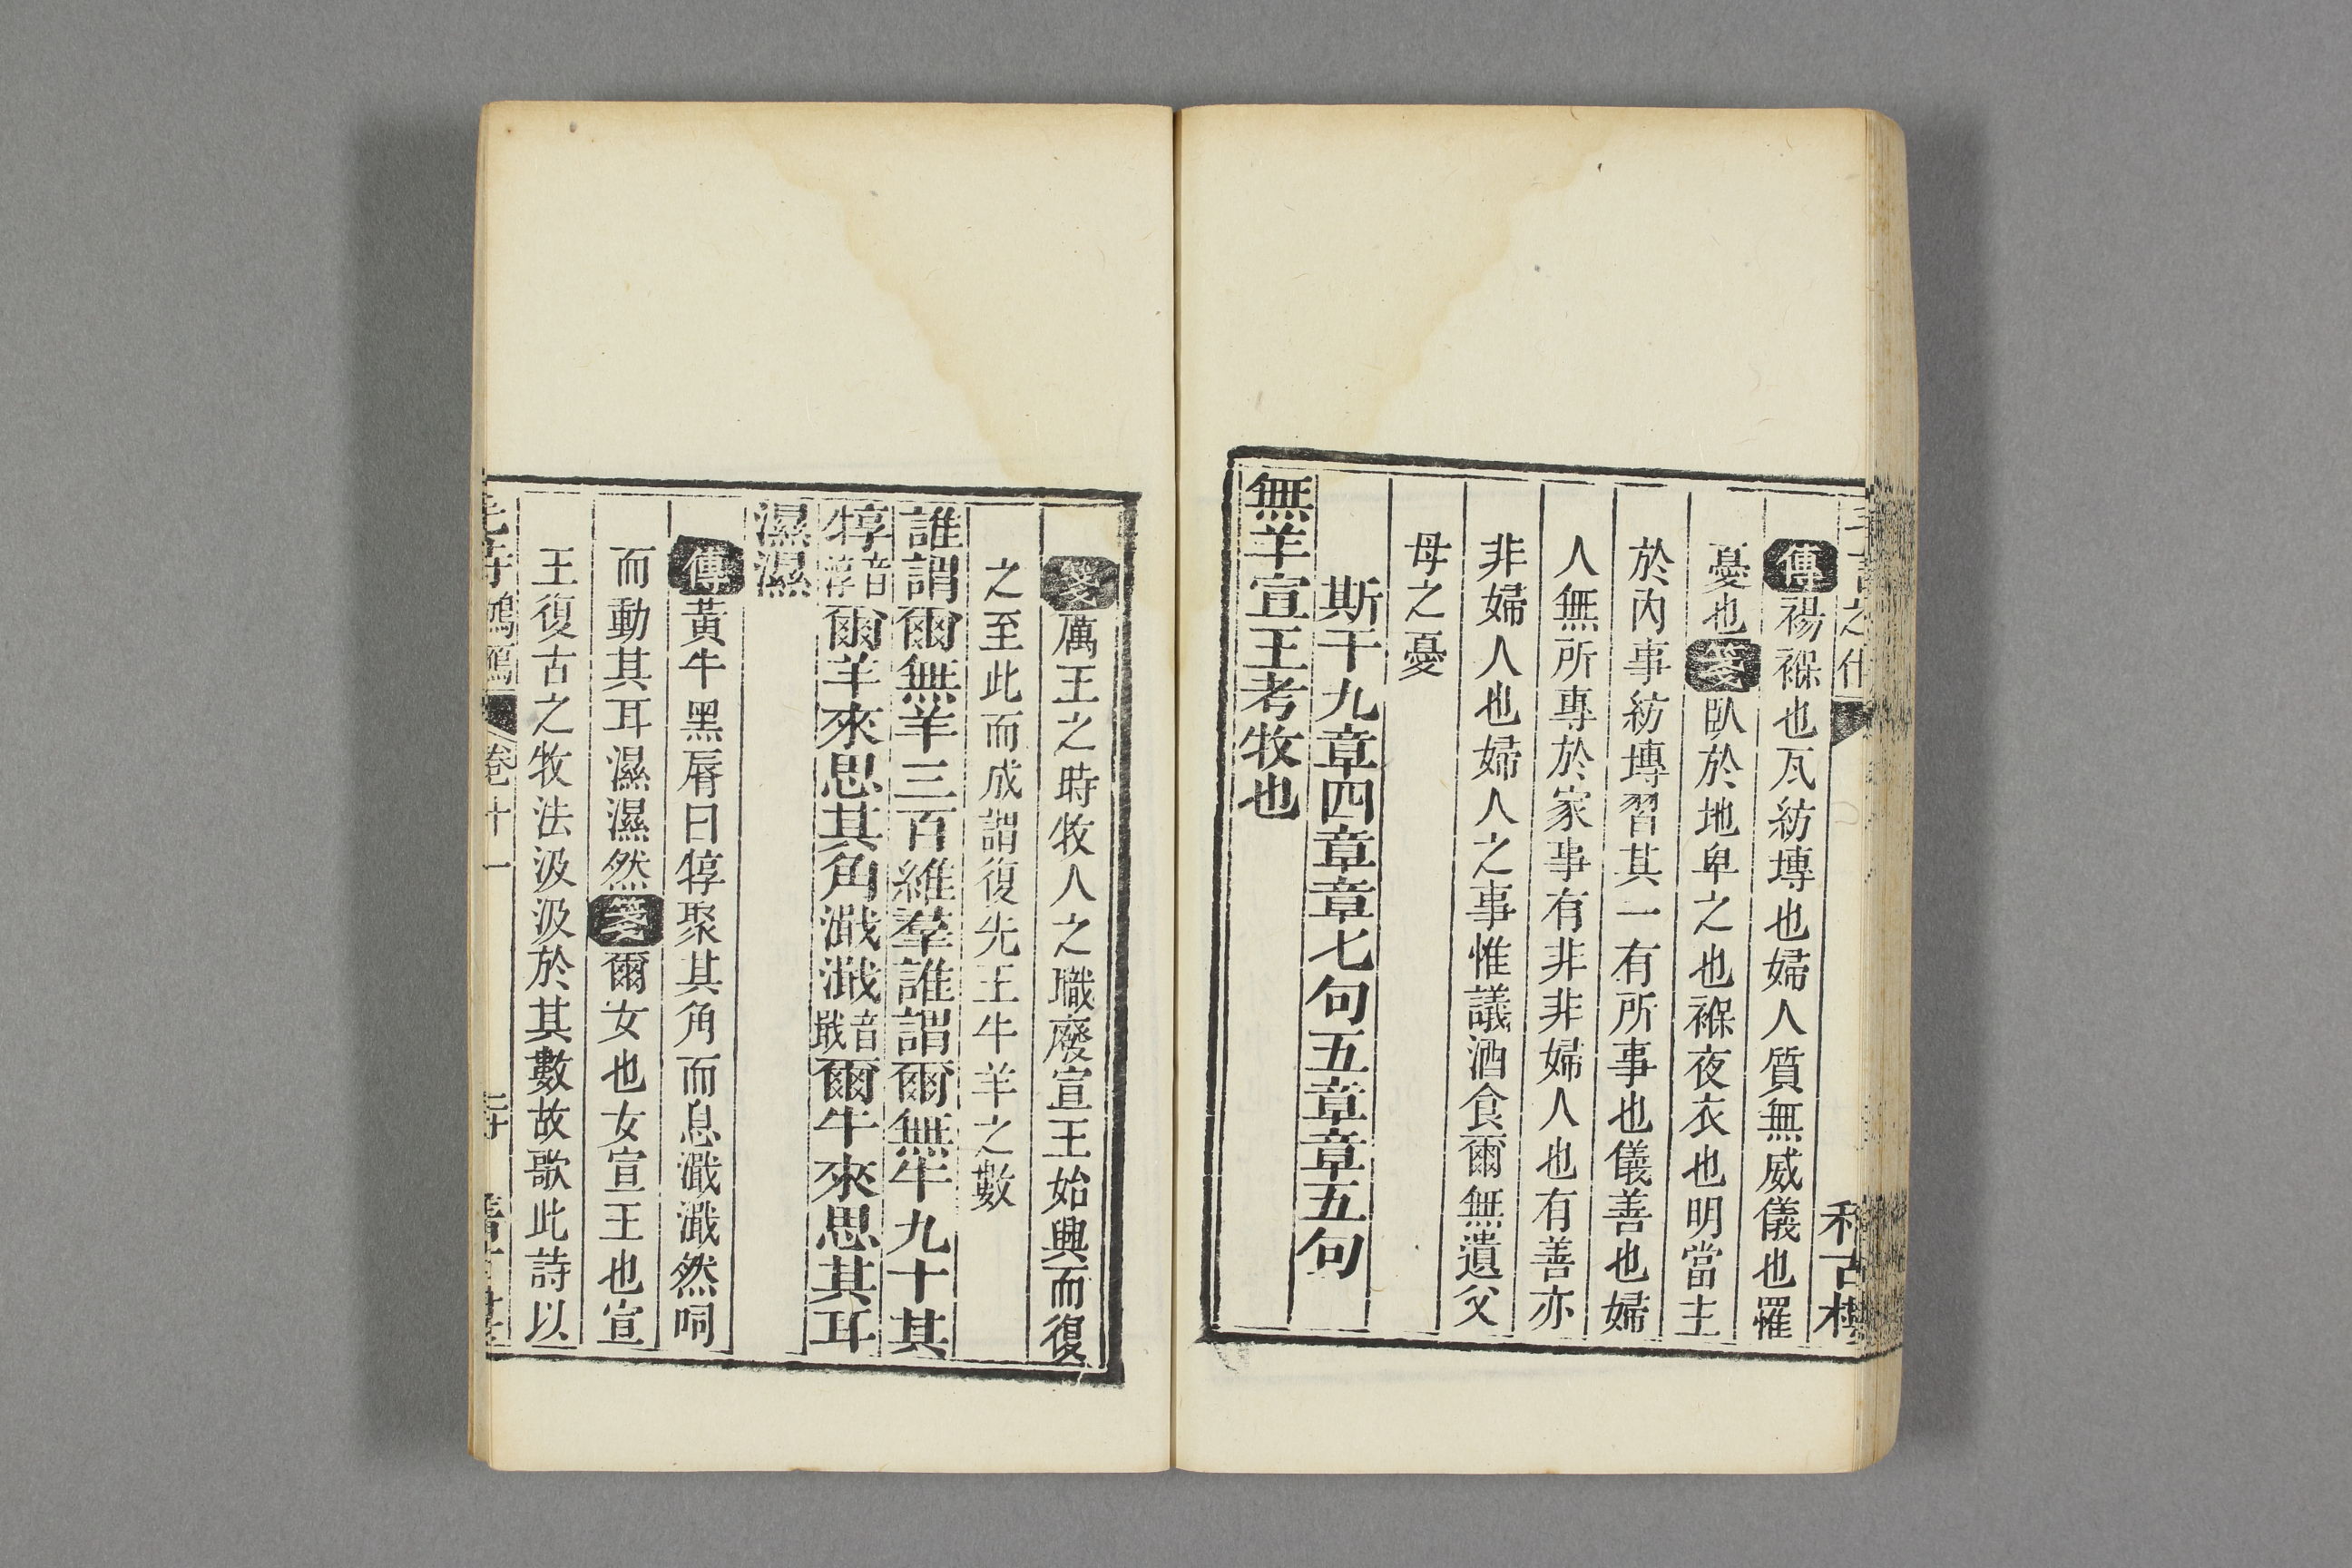 傳裼褓也瓦紡塼也婦人質無威儀也罹
憂也箋臥於地卑之也褓夜衣也明當主
於內事紡塼習其一有所事也儀善也婦
人無所專於家事有非非婦人也有善亦
非婦人也婦人之事惟議酒食爾無遺父
母之憂
斯干九章四章章七句五章章五句
無羊宣王考牧也
箋厲王之時牧人之職廢宣王始興而復
之至此而成謂復先王牛羊之數
誰謂爾無羊三百維羣誰謂爾無牛九十其
犉音淳爾羊來思其角濈濈音戢爾牛來思其耳
濕濕
傳黃牛黑脣曰犉聚其角而息濈濈然呞
而動其耳濕濕然箋爾女也女宣王也宣
王復古之牧法汲汲於其數故歌此詩以
卷十一